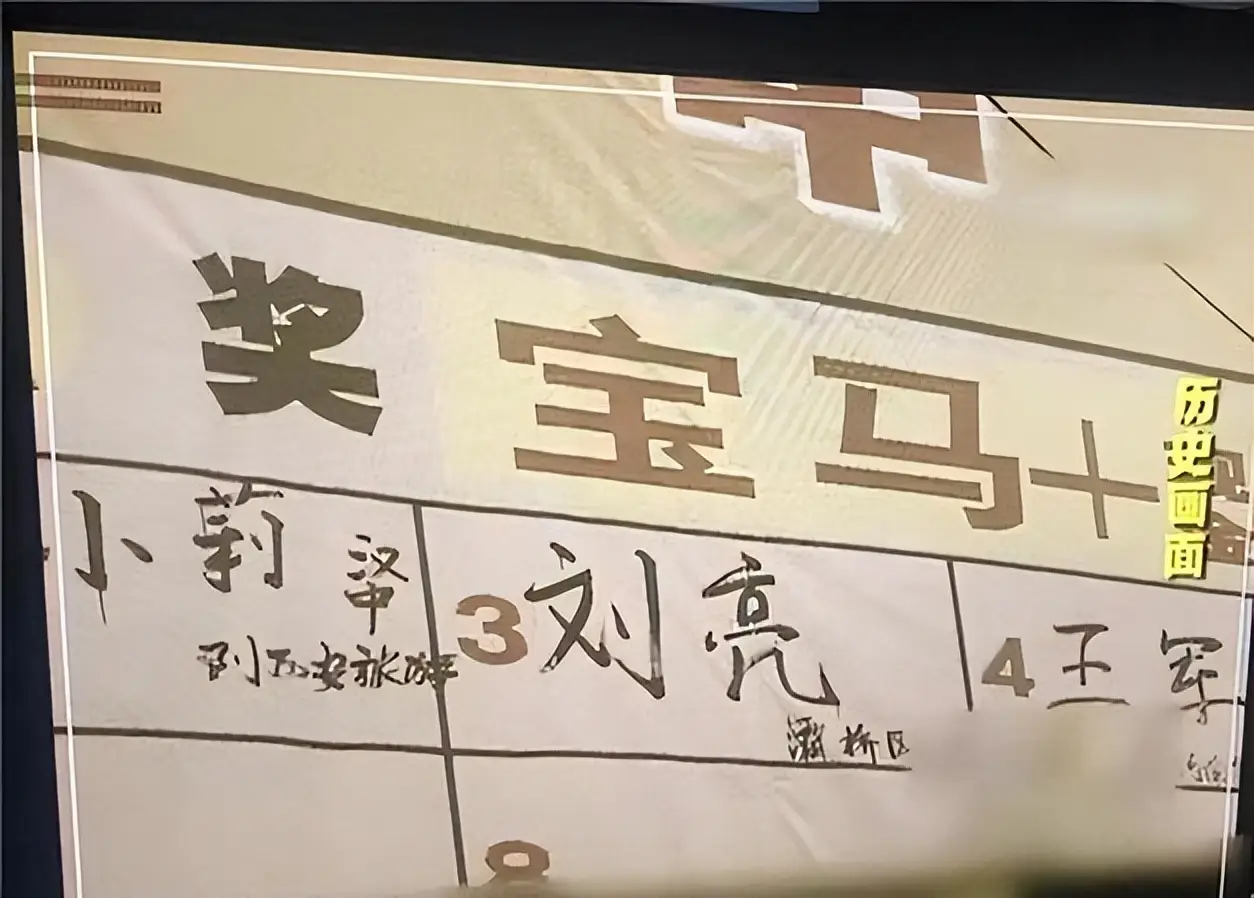 奖 宝马+
历史画面
小莉 汉中
到西安旅游
3 刘亮
灞桥区
4 王军
8